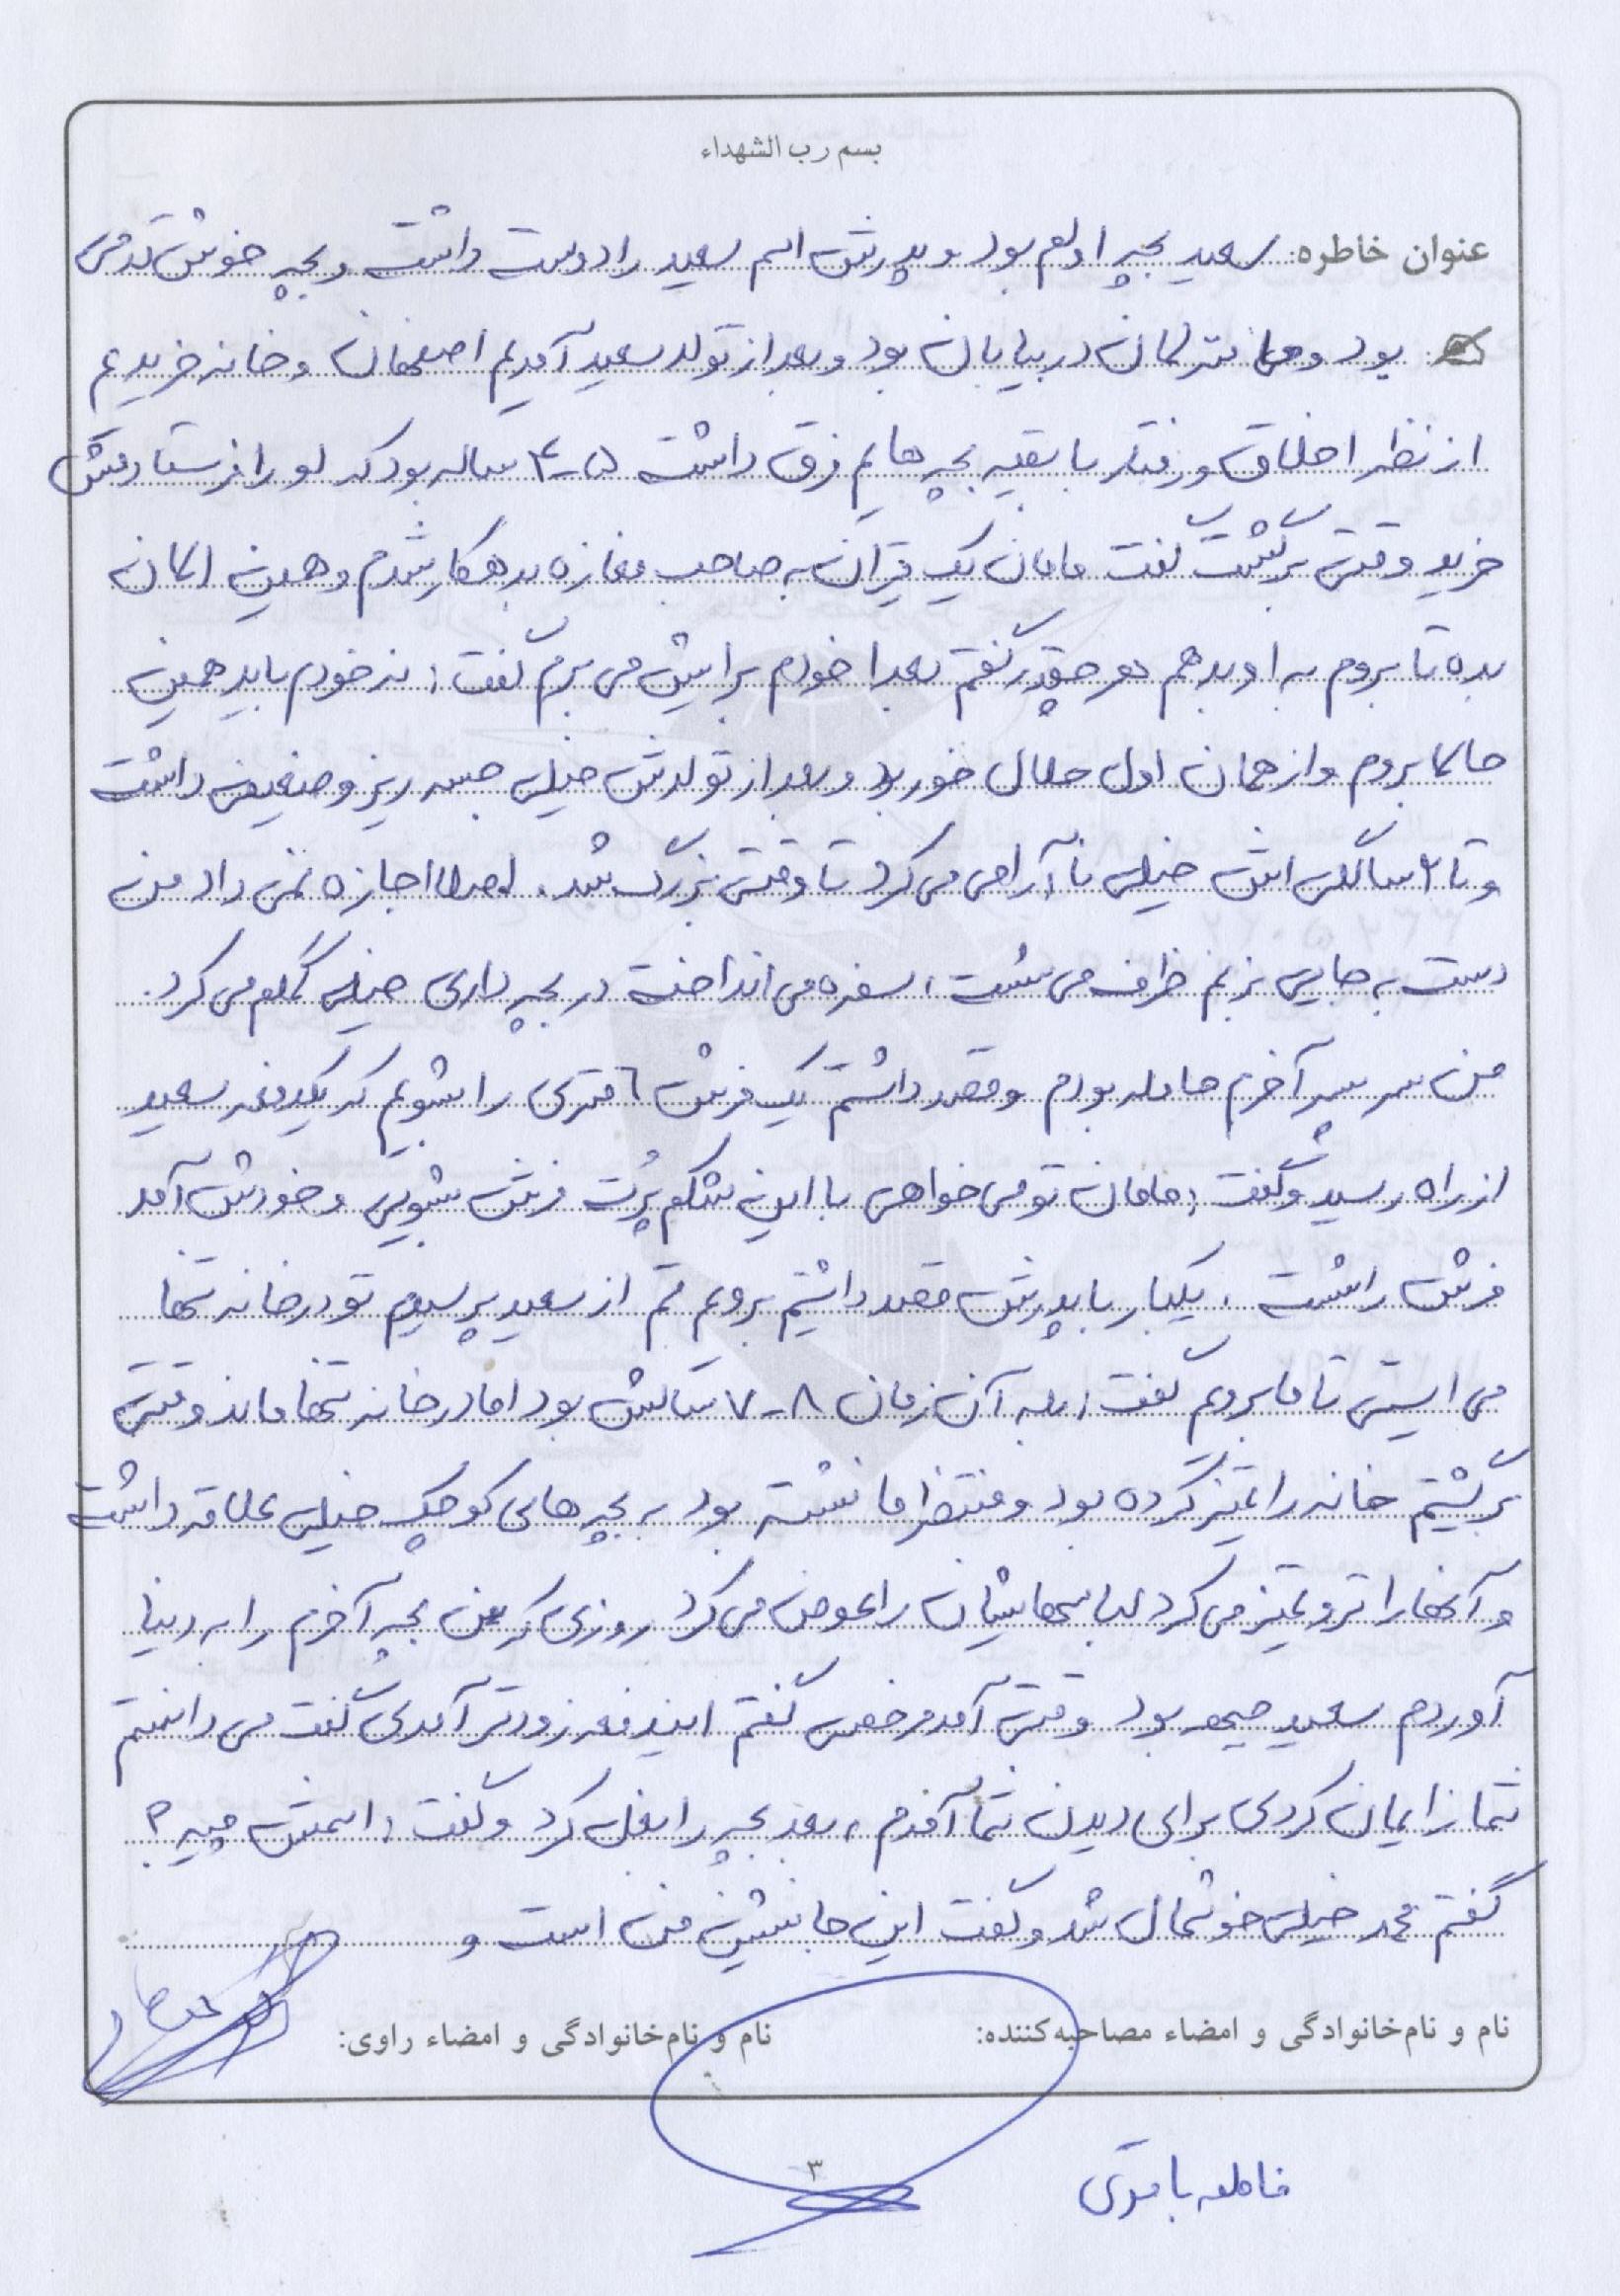 بسم رب الشهداء
عنوان خاطره: سعید بچه اولم بود و پدرش اسم سعید را دوست داشت و بچه خوش قدمی
بود و ما منزلمان در بیابان بود و بعد از تولد سعید آمدیم اصفهان و خانه خریدیم
از نظر اخلاق و رفتار با بقیه بچه هایم فرق داشت ۵-۴ ساله بود که او را فرستادمش
خرید وقتی برگشت گفت مامان یک قران به صاحب مغازه بدهکار شدم و همین الان
بده تا بروم به او بدهم هر چقدر گفتم بعدا خودم برایش می برم گفت: نه خودم باید همین
حالا بروم و از همان اول حلال خور بود و بعد از تولدش خیلی جسه ریز و ضعیفی داشت
و تا ۲ سالگی اش خیلی نا آرامی می کرد تا وقتی بزرگ شد. اصلا اجازه نمی داد من
دست به جایی بزنم ظرف می شست، سفره می انداخت در بچه داری خیلی کمکم می کرد.
من سر پسر آخرم حامله بودم و قصد داشتم یک فرش ۶ متری را بشویم که یکدفعه سعید
از راه رسید و گفت: مامان تو می خواهی با این شکم پرت فرش بشویی و خودش آمد
فرش را شست. یکبار با پدرش قصد داشتیم برویم قم از سعید پرسیدم تو در خانه تنها
می ایستی تا ما برویم گفت: بله آن زمان ۸-۷ سالش بود اما در خانه تنها ماند وقتی
برگشتیم خانه را تمیز کرده بود و منتظر ما نشسته بود به بچه های کوچک خیلی علاقه داشت
و آنها را تر و تمیز می کرد لباسهایشان را عوض می کرد روزی که من بچه آخرم را به دنیا
آوردم سعید جبهه بود وقتی آمد مرخصی گفتم ایندفعه زودتر آمدی گفت می دانستم
شما زایمان کردی برای دیدن شما آمدم، بعد بچه را بغل کرد و گفت: اسمش چیه؟
گفتم محمد خیلی خوشحال شد و گفت این جانشین من است و
نام و نام‌خانوادگی و امضاء مصاحبه‌کننده: نام و نام‌خانوادگی و امضاء راوی:
۳
فاطمه باقری